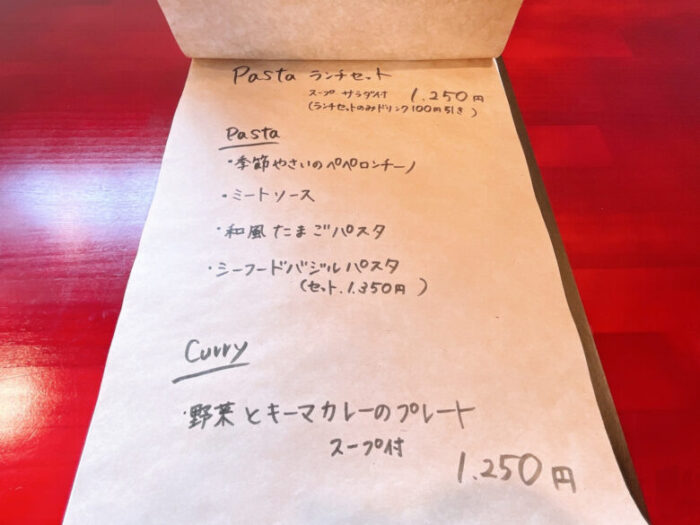 Pasta ランチセット
スープ サラダ付 1.250円
(ランチセットのみドリンク100円引き)
Pasta
・季節やさいのペペロンチーノ
・ミートソース
・和風たまごパスタ
・シーフードバジルパスタ
(セット.1.350円)
Curry
・野菜とキーマカレーのプレート
スープ付
1.250円